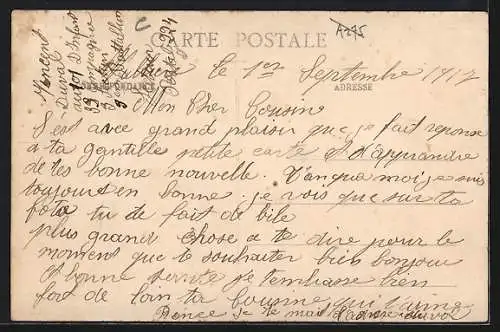 A275
CARTE POSTALE
CORRESPONDANCE
ADRESSE
Duval
Compagnie
Bataillon
Secteur 224
le 1er Septembre 1917
Mon Cher Cousin
S'est avec grand plaisir que je fait reponse
a ta gentille petite carte et d'apprandre
de tes bonne nouvelle. Tan qua moi je suis
toujours en bonne. je vois que sur ta
tu de fait de bile
plus grand chose a te dire pour le
moment que te souhaiter bien bonjour
et bonne sante je t'embrasse bien
for de loin ta Cousine qui t'aime
je te mait l'adresse duval